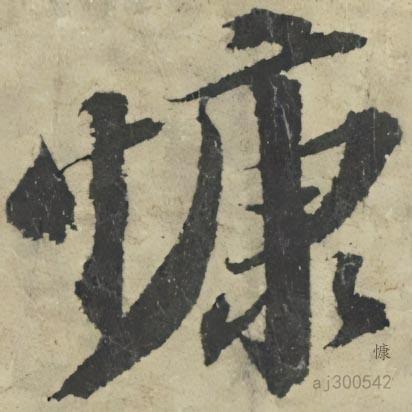 慷
慷
aj300542